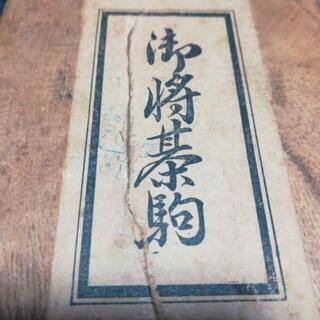 御将棊駒